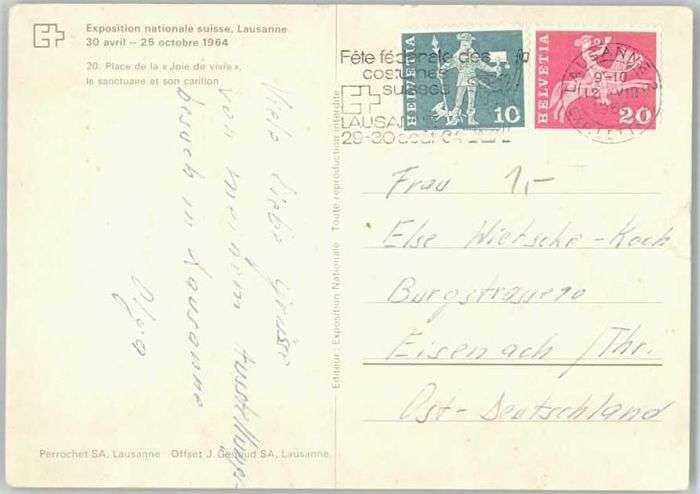 Exposition nationale suisse, Lausanne
30 avril – 25 octobre 1964
20. Place de la «Joie de vivre»,
le sanctuaire et son carillon
Viele liebe Grüsse
von meinem Ausstellungs-
besuch in Lausanne
Olga
Perrochet SA, Lausanne Offset J. Genoud SA, Lausanne
Editeur: Exposition Nationale Toute reproduction interdite
Fête fédérale des
costumes
suisses
LAUSANNE
29-30 août 64
HELVETIA
10
HELVETIA
20
LAUSANNE
9-10
12 VIII
Frau 1,-
Else Nietsche-Koch
Burgstrasse 10
Eisenach/Thr.
Ost-Deutschland